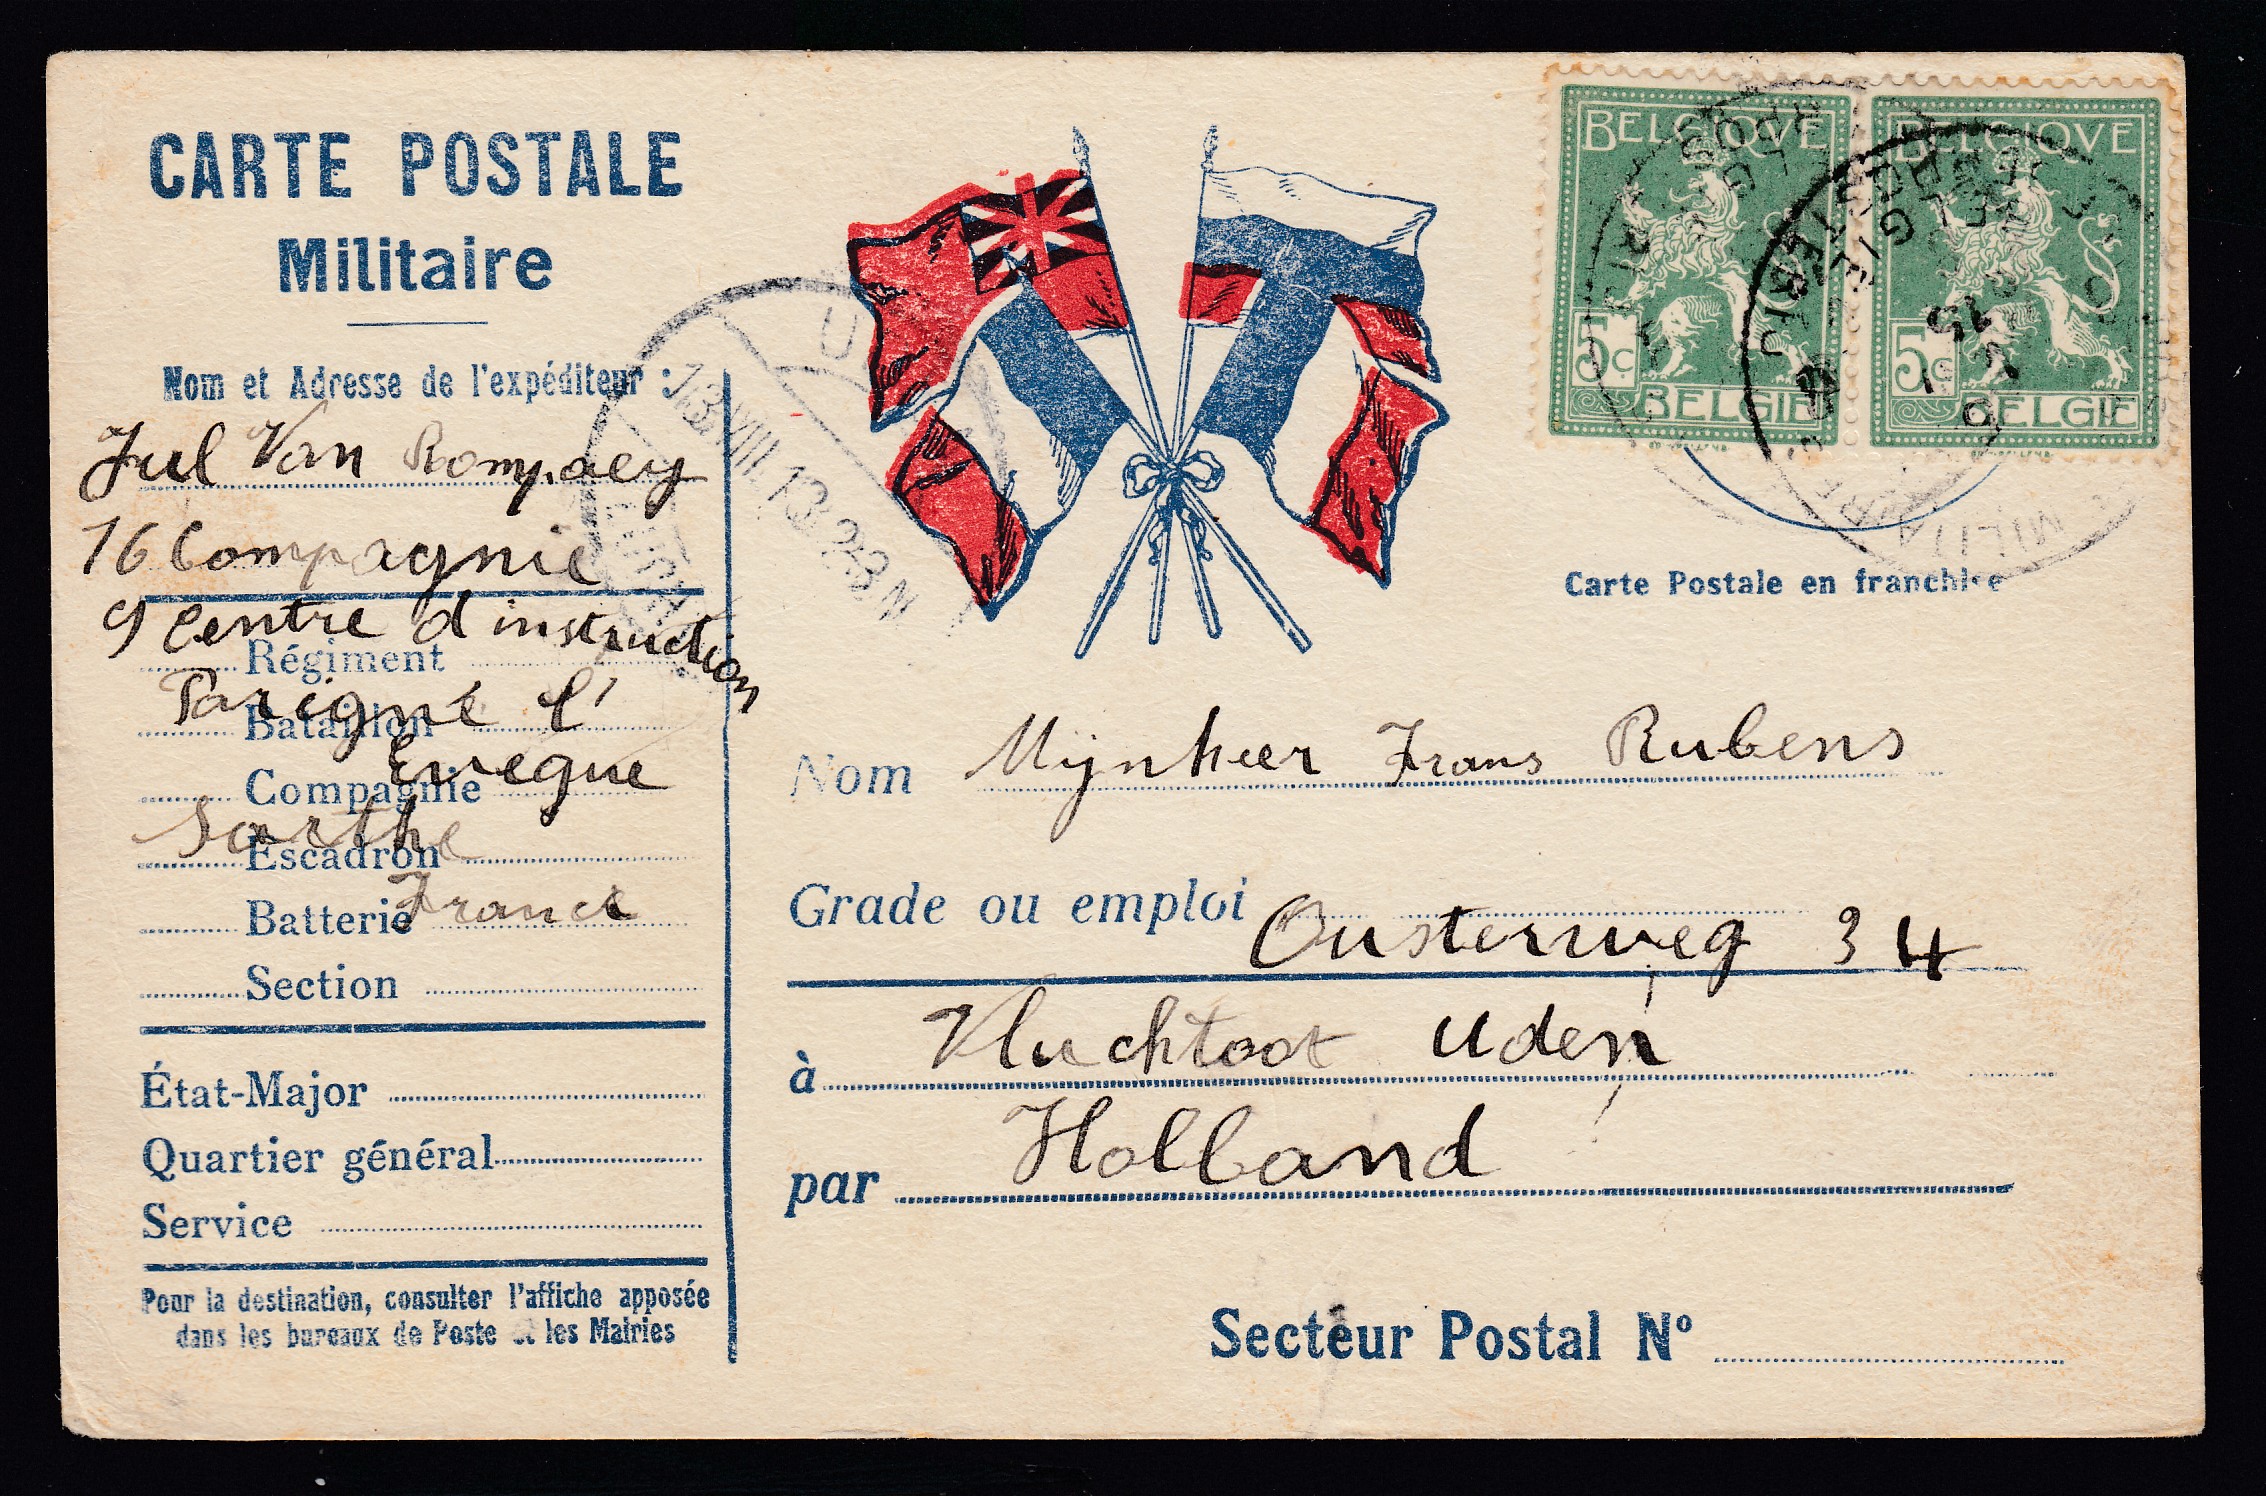 CARTE POSTALE
Militaire
Nom et Adresse de l'expéditeur :
Jul Van Rompaey
16 Compagnie
9 Centre d'instruction
Régiment
Parigné l'
Bataillon
Eveque
Compagnie
Sarthe
Escadron
France
Batterie
Section
État-Major
Quartier général
Service
Pour la destination, consulter l'affiche apposée
dans les bureaux de Poste et les Mairies
13.VIII.13 2-3N
BELGIQUE
5c
BELGIE
BELGIQUE
5c
BELGIE
MILITAIRE
15
Carte Postale en franchise
Nom Mijnheer Frans Rubens
Grade ou emploi
34
à Vluchtoot Uden
par Holland
Secteur Postal No